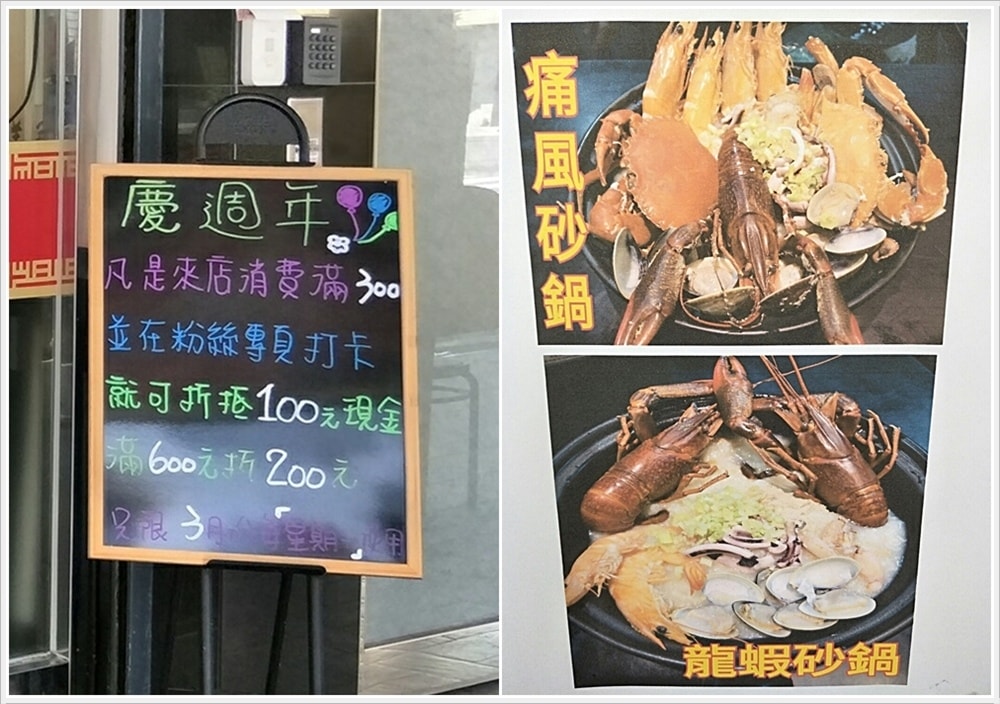 慶週年
凡是來店消費滿300
並在粉絲專頁打卡
就可折抵100元現金
滿600元折200元
只限3月份每星期「一」使用
痛風砂鍋
龍蝦砂鍋